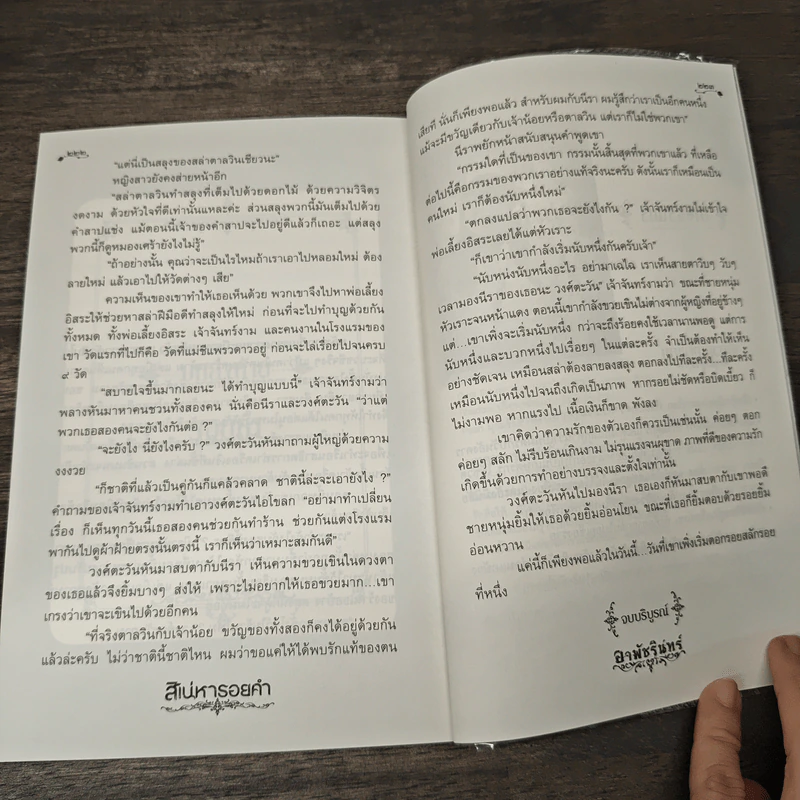 ๒๒๒
"แต่นี่เป็นสลุงของสล่าตาลวินเชียวนะ"
หญิงสาวยังคงส่ายหน้าอีก
"สล่าตาลวินทำสลุงที่เต็มไปด้วยดอกไม้ ด้วยความวิจิตร
งดงาม ด้วยหัวใจที่ดีเท่านั้นแหละค่ะ ส่วนสลุงพวกนี้มันเต็มไปด้วย
คำสาปแช่ง แม้ตอนนี้เจ้าของคำสาปจะไปอยู่ดีแล้วก็เถอะ แต่สลุง
พวกนี้ก็ดูหมองเศร้ายังไงไม่รู้"
"ถ้าอย่างนั้น คุณว่าจะเป็นไรไหมถ้าเราเอาไปหลอมใหม่ ต้อง
ลายใหม่ แล้วเอาไปให้วัดต่างๆ เสีย"
ความเห็นของเขาทำให้เธอเห็นด้วย พวกเขาจึงไปหาพ่อเลี้ยง
อิสระให้ช่วยหาสล่าฝีมือดีทำสลุงให้ใหม่ ก่อนที่จะไปทำบุญด้วยกัน
ทั้งหมด ทั้งพ่อเลี้ยงอิสระ เจ้าจันทร์งาม และคนงานในโรงแรมของ
เขา วัดแรกที่ไปก็คือ วัดที่แม่ชีแพรวดาวอยู่ ก่อนจะไล่เรื่อยไปจนครบ
๙ วัด
"สบายใจขึ้นมากเลยนะ ได้ทำบุญแบบนี้" เจ้าจันทร์งามว่า
พลางหันมาหาคนชวนทั้งสองคน นั่นคือนีราและวงศ์ตะวัน "ว่าแต่
พวกเธอสองคนจะยังไงกันต่อ ?"
"จะยังไง นี่ยังไงครับ ?" วงศ์ตะวันหันมาถามผู้ใหญ่ด้วยความ
งงงวย
"ก็ชาติที่แล้วเป็นคู่กันก็แคล้วคลาด ชาตินี้ล่ะจะเอายังไง ?"
คำถามของเจ้าจันทร์งามทำเอาวงศ์ตะวันไอโขลก "อย่ามาทำเปลี่ยน
เรื่อง ก็เห็นทุกวันนี้เธอสองคนช่วยกันทำร้าน ช่วยกันแต่งโรงแรม
พากันไปดูผ้าฝ้ายตรงนั้นตรงนี้ เราก็เห็นว่าเหมาะสมกันดี"
วงศ์ตะวันหันมาสบตากับนีรา เห็นความขวยเขินในดวงตา
ของเธอแล้วจึงยิ้มบางๆ ส่งให้ เพราะไม่อยากให้เธอขวยมาก...เขา
เกรงว่าเขาจะเขินไปด้วยอีกคน
"ที่จริงตาลวินกับเจ้าน้อย ขวัญของทั้งสองก็คงได้อยู่ด้วยกัน
แล้วล่ะครับ ไม่ว่าชาตินี้ชาติไหน ผมว่าขอแค่ให้ได้พบรักแท้ของตน
สิเน่หารอยคำ
๒๒๓
เสียที นั่นก็เพียงพอแล้ว สำหรับผมกับนีรา ผมรู้สึกว่าเราเป็นอีกคนหนึ่ง
แม้จะมีขวัญเดียวกับเจ้าน้อยหรือตาลวิน แต่เราก็ไม่ใช่พวกเขา"
นีราพยักหน้าสนับสนุนคำพูดเขา
"กรรมใดที่เป็นของเขา กรรมนั้นสิ้นสุดที่พวกเขาแล้ว ที่เหลือ
ต่อไปนี้คือกรรมของพวกเราอย่างแท้จริงนะครับ ดังนั้นเราก็เหมือนเป็น
คนใหม่ เราก็ต้องนับหนึ่งใหม่"
"ตกลงแปลว่าพวกเธอจะยังไงกัน ?" เจ้าจันทร์งามไม่เข้าใจ
พ่อเลี้ยงอิสระเลยได้แต่หัวเราะ
"ก็เขาว่าเขากำลังเริ่มนับหนึ่งกันครับเจ้า"
"นับหน่งนับหนึ่งอะไร อย่ามาเฉไฉ เราเห็นสายตาวิบๆ วับๆ
เวลามองนีราของเธอนะ วงศ์ตะวัน" เจ้าจันทร์งามว่า ขณะที่ชายหนุ่ม
หัวเราะจนหน้าแดง ตอนนี้เขากำลังขวยเขินไม่ต่างจากผู้หญิงที่อยู่ข้างๆ
แต่...เขาเพิ่งจะเริ่มนับหนึ่ง กว่าจะถึงร้อยคงใช้เวลานานพอดู แต่การ
นับหนึ่งและบวกหนึ่งไปเรื่อยๆ ในแต่ละครั้ง จำเป็นต้องทำให้เห็น
อย่างชัดเจน เหมือนสล่าต้องลายลงสลุง ตอกลงไปทีละครั้ง...ทีละครั้ง
เหมือนนับหนึ่งไปจนถึงเกิดเป็นภาพ หากรอยไม่ชัดหรือบิดเบี้ยว ก็
ไม่งามพอ หากแรงไป เนื้อเงินก็ขาด พังลง
เขาคิดว่าความรักของตัวเองก็ควรเป็นเช่นนั้น ค่อยๆ ตอก
ค่อยๆ สลัก ไม่รีบร้อนเกินงาม ไม่รุนแรงจนผุขาด ภาพที่ดีของความรัก
เกิดขึ้นด้วยการทำอย่างบรรจงและตั้งใจเท่านั้น
วงศ์ตะวันหันไปมองนีรา เธอเองก็หันมาสบตากับเขาพอดี
ชายหนุ่มยิ้มให้เธอด้วยยิ้มอ่อนโยน ขณะที่เธอก็ยิ้มตอบด้วยรอยยิ้ม
อ่อนหวาน
แค่นี้ก็เพียงพอแล้วในวันนี้...วันที่เขาเพิ่งเริ่มตอกรอยสลักรอย
ที่หนึ่ง
จบบริบูรณ์
อาพัชรินทร์